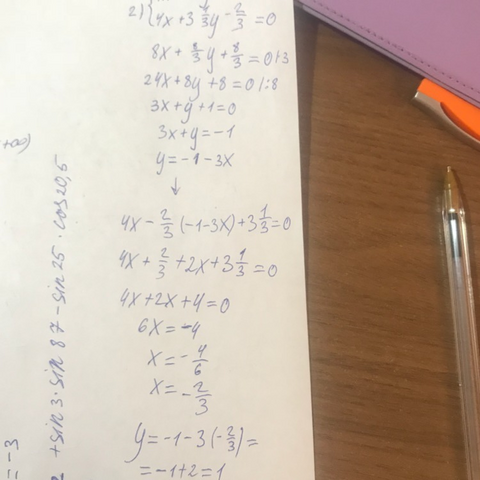 2) { 4x + 3 1/3 y - 2/3 = 0
8x + 8/3 y + 8/3 = 0 |·3
24x + 8y + 8 = 0 |:8
3x + y + 1 = 0
3x + y = -1
y = -1 - 3x
↓
4x - 2/3 (-1 - 3x) + 3 1/3 = 0
4x + 2/3 + 2x + 3 1/3 = 0
4x + 2x + 4 = 0
6x = -4
x = - 4/6
x = - 2/3
y = -1 - 3 (- 2/3) =
= -1 + 2 = 1
+∞)
2 + sin 3 · sin 87 - sin 25 · cos 20,5
= -3